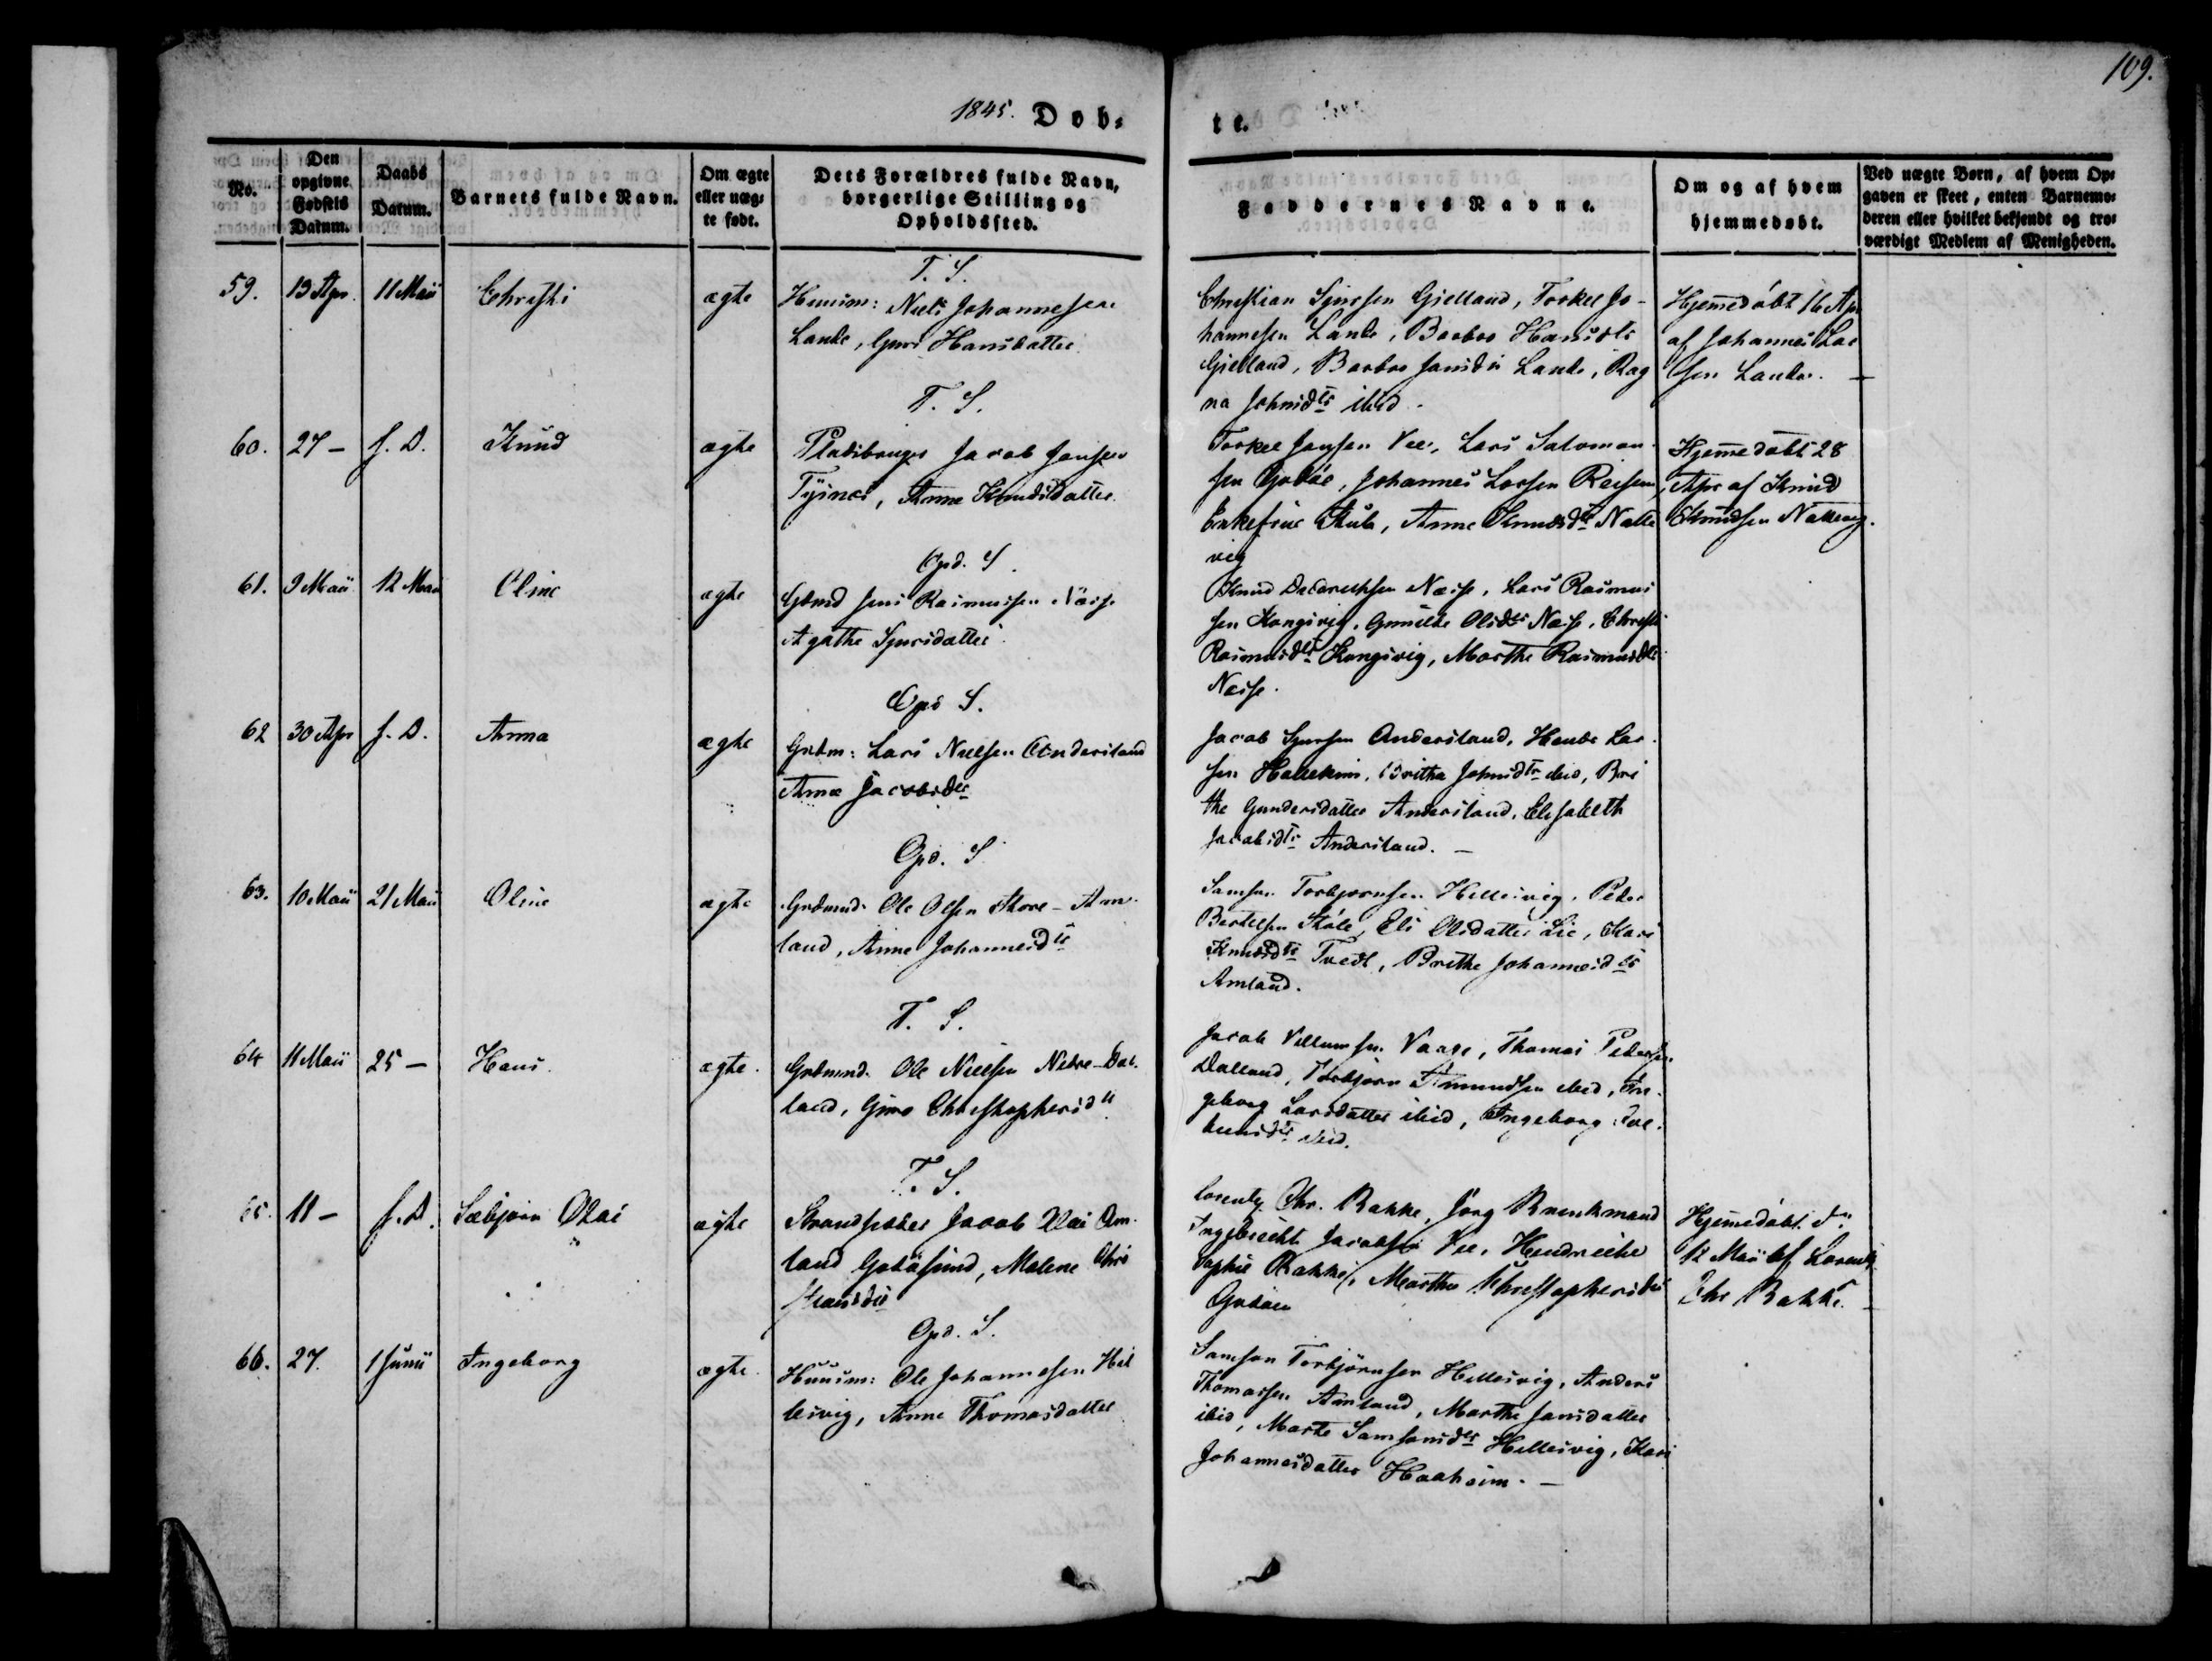 109.
1845. Døb-
te.
No.
Den opgivne Fødsels Datum.
Daabs Datum.
Barnets fulde Navn.
Om ægte eller uæg-te født.
Dets Forældres fulde Navn, borgerlige Stilling og Opholdssted.
Faddernes Navne.
Om og af hvem hjemmedøbt.
Ved uægte Børn, af hvem Op-gaven er skeet, enten Barnemo-deren eller hvilket bekjendt og tro-værdigt Medlem af Menigheden.
T. S.
59. 13 Apr. 11 Maii Christi ægte Huusm: Niels Johannesen
Lande, Guro Hansdatter
Christian Sjursen Gjelland, Torkel Jo-
hannesen Lande, Barbro Hansdtr
Gjelland, Barbro Jansdtr Lande, Rag
na Johnsdtr ibid.
Hjemedøbt 16 Apr
af Johannes Lar
sen Lande. —
T. S.
60. 27 — s. D. Knud ægte Pladsbruger Jacob Jansen
Tysnes, Anna Knudsdatter.
Torkel Jansen Vee, Lars Salomon-
sen Godøe, Johannes Larsen Reisen,
Enkefrue, Anne Knudsdtr Natte
vig
Hjemedøbt 28
Apr af Knud
Knudsen Nattevig.
Opd. S.
61. 9 Maii 12 Maii Oline ægte Gbmd Jens Rasmussen Næse
Agathe Sjursdatter
Knud Næse, Lars Rasmus
sen Kongsvig, Gunilde Olsdtr Næse, Christi
Rasmusdtr Kongsvig, Marthe Rasmusdtr
Næse.
Opd S.
62 30 Apr s. D. Anna ægte Grdm: Lars Nielsen Anderiland
Anna Jacobsdtr
Jacob Sjursen Anderiland, Lar-
sen, Britha Johnsdtr ibid, Bri
the Gundersdatter Anderiland, Elisabeth
Jacobsdtr Anderiland. —
Opd. S
63. 10 Maii 21 Maii Oline ægte Grdmnd. Ole Olsen Store-Am-
land, Anne Johannesdtr
Samson Torbjørnsen Hillesvig, Peder
Bertelsen, Eli Olsdatter Lie, Kari
Knudsdtr Tvedt, Brithe Johannesdtr
Amland.
T. S.
64 11 Maii 25 — Hans. ægte. Grdmnd. Ole Nielsen Nedre-Dal-
land, Guro Christophersdtr
Jacob Villumsen Vaage, Thomas Pedersen
Dalland, Torbjørn Amundsen ibid, In-
geborg Larsdatter ibid, Ingeborg
ibid.
T. S.
65. 11 — s. D. Sæbjørn Olai ægte Strandsidder Jacob Olai Am-
land Godøsund, Malene Chri
stiansdtr
Lorentz Chr. Bakke, Brinchmand
Ingebrecht Jacobsen Vee, Hendrikke
Sophie Bakke, Marthe Christophersdtr
Godøen
Hjemedøbt dn
12 Maii af Lorentz
Chr Bakke. —
Opd. S.
66. 27. 1 Junii Ingeborg ægte Huusm: Ole Johannesen Hil
lesvig, Anne Thomasdatter
Samson Torbjørnsen Hillesvig, Anders
Thomassen Amland, Marthe Jansdatter
ibid, Marte Samsonsdtr Hillesvig, Kari
Johannesdatter Haaheim. —